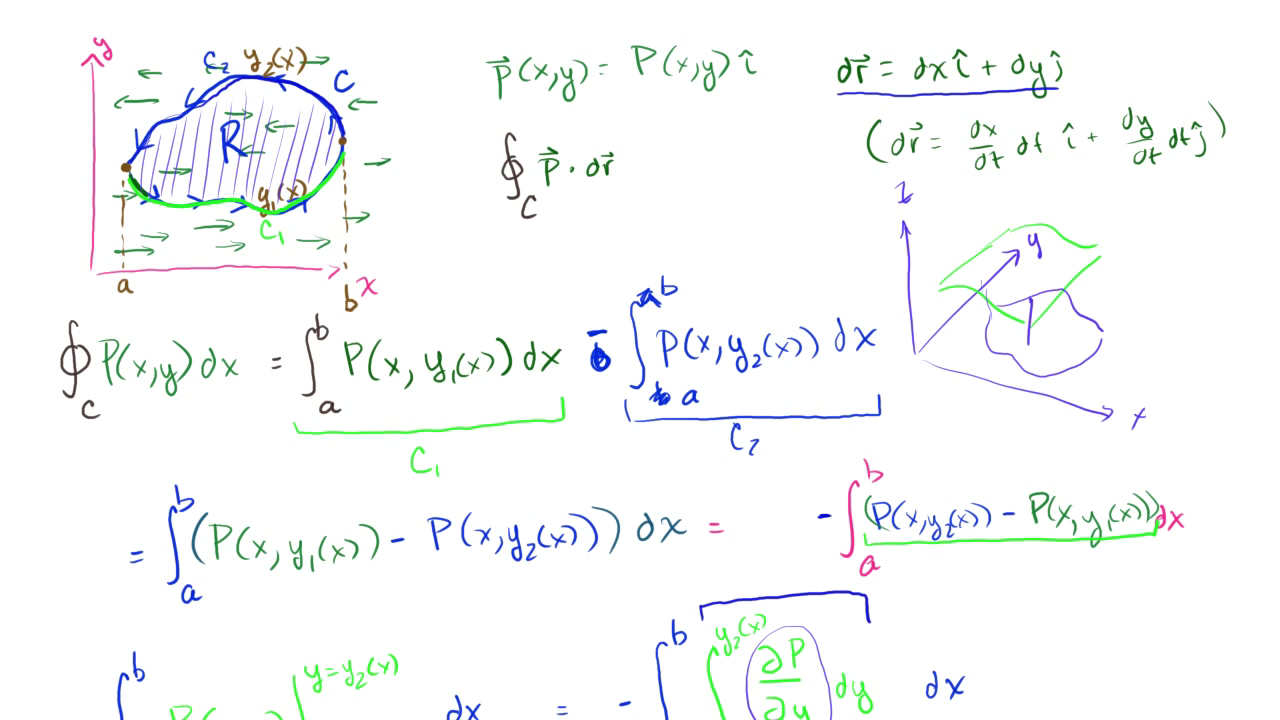 y
C₂ y₂(x) C
R
y₁(x)
C₁
a b x
P⃗(x,y) = P(x,y) î
∮_C P⃗ · dr⃗
dr⃗ = dx î + dy ĵ
(dr⃗ = dx/dt dt î + dy/dt dt ĵ)
z
y
x
∮_C P(x,y) dx = ∫_a^b P(x, y₁(x)) dx - ∫_a^b P(x, y₂(x)) dx
C₁ C₂
= ∫_a^b (P(x, y₁(x)) - P(x, y₂(x))) dx = - ∫_a^b (P(x, y₂(x)) - P(x, y₁(x))) dx
b y=y₂(x) dx = - ∫^b ∫^y₂(x) ∂P/∂y dy dx